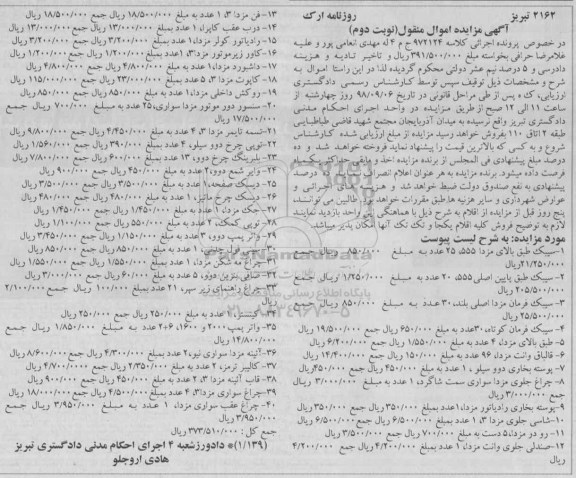 ۲۱۶۲ تبریز روزنامه ارک
آگهی مزایده اموال منقول(نوبت دوم)
در خصوص پرونده اجرائی کلاسه ۹۷۲۱۲۴ ح م ۴ له مهدی نعامی پور و علیه
غلامرضا حرافی بخواسته مبلغ ۳۹۱/۵۰۰/۰۰۰ ریال و تاخیر تادیه و هزینه
دادرسی و ۵ درصد نیم عشر دولتی محکوم گردیده لذا در این راستا اموال به
شرح و مشخصات ذیل توقیف سپس توسط کارشناس رسمی دادگستری
ارزیابی، که پس از طی مراحل قانونی در تاریخ ۹۸/۰۹/۰۶ روز چهارشنبه از
ساعت ۱۱ الی ۱۲ صبح از طریق مزایده در واحد اجرای احکام مدنی
دادگستری تبریز واقع نرسیده به میدان آذربایجان مجتمع شهید قاضی طباطبایی
طبقه ۲ اتاق ۱۱۰ بفروش خواهد رسید مزایده از مبلغ ارزیابی شده کارشناس
شروع و به کسی که بالاترین قیمت را پیشنهاد نماید فروخته خواهد شد و ده
درصد مبلغ پیشنهادی فی المجلس از برنده مزایده اخذ و مابقی حداکثر یکماه
فرصت داده میشود. برنده مزایده به هر عنوان اعلام انصراف درصد
پیشنهادی به نفع صندوق دولت ضبط خواهد شد و هزینه های اجرائی و
عوارض شهرداری و سایر هزینه ها طبق مقررات خواهد بود. طالبین می توانند
پنج روز قبل از مزایده از اقلام به شرح ذیل با هماهنگی این واحد بازدید نمایند
لازم به توضیح فروش کلیه اقلام یکجا و تک تک آنها امکان پذیر میباشد.
مورد مزایده: به شرح لیست پیوست
۱-سیبک طبق بالای مزدا ۵۵۵، ۲۵ عدد به مبلغ ۸۵۰/۰۰۰ ریال جمع
۲۱/۲۵۰/۰۰۰ریال
۲- سیبک طبق پایین اصلی ۵۵۵، ۲۰ عدد به مبلغ ۱/۲۵۰/۰۰۰ ریال جمع
ریال
۳- سیبک فرمان مزدا اصلی بلند،۳۰ عدد به مبلغ ۸۵۰/۰۰۰ ریال جمع
۲۵/۵۰۰/۰۰۰ ریال
۴- سیبک فرمان کوتاه،۳۰عدد به مبلغ ۶۵۰/۰۰۰ ریال جمع ۱۹/۵۰۰/۰۰۰ ریال
۵- طبق بالای مزدا، ۴ عدد به مبلغ ۱/۵۵۰/۰۰۰ ریال جمع ۶/۲۰۰/۰۰۰ ریال
۶- قالپاق وانت مزدا، ۹۶ عدد به مبلغ ۱۵۰/۰۰۰ ریال جمع ۱۴/۴۰۰/۰۰۰ ریال
۷- پوسته بخاری دوو سیلو ، ۱ عدد به مبلغ ۴۵۰/۰۰۰ ریال جمع ۴۵۰/۰۰۰ریال
۸- چراغ جلوی مزدا سواری سمت شاگرد، ۱ عدد به مبلغ ۳/۰۰۰/۰۰۰ ریال
جمع ۳/۰۰۰/۰۰۰ ریال
۹-پوسته بخاری رادیاتور مزدا،۱عدد بمبلغ ۳۵۰/۰۰۰ ریال جمع ۳۵۰/۰۰۰ ریال
۱۰-شاسی جلوی مزدا ۳، ۱ عدد بمبلغ ۶/۵۰۰/۰۰۰ ریال جمع ۶/۵۰۰/۰۰۰ ریال
۱۱- رو در مزدا،۵ دست به مبلغ ۷۰۰/۰۰۰ ریال جمع ۳/۵۰۰/۰۰۰ ریال
۱۲-صندلی جلوی وانت مزدا، ۱ عدد بمبلغ ۴/۲۰۰/۰۰۰ ریال جمع ۴/۲۰۰/۰۰۰
ریال
۱۳- فن مزدا ۳، ۱ عدد به مبلغ ۱۸/۵۰۰/۰۰۰ ریال جمع ۱۸/۵۰۰/۰۰۰ ریال
۱۴- درب عقب کاپرا، ۱ عدد به مبلغ ۱۳/۰۰۰/۰۰۰ ریال جمع ۱۳/۰۰۰/۰۰۰ ریال
۱۵- رادیاتور کولر مزدا،۱ عدد بمبلغ ۳/۲۰۰/۰۰۰ ریال جمع ۳/۲۰۰/۰۰۰ ریال
۱۶-کاور زیرموتور مزدا۳،۱ عدد بمبلغ ۱/۲۰۰/۰۰۰ ریال جمع ۱/۲۰۰/۰۰۰ ریال
۱۷- داشبورد مزدا،۱ عدد به مبلغ ۴/۸۰۰/۰۰۰ ریال جمع ۴/۸۰۰/۰۰۰ ریال
۱۸- کاپوت مزدا ۳، ۵ عدد بمبلغ ۲۳/۰۰۰/۰۰۰ ریال جمع ۱۱۵/۰۰۰/۰۰۰ ریال
۱۹- روکش داخلی مزدا،۱ عدد به مبلغ ۸۵۰/۰۰۰ ریال جمع ۸۵۰/۰۰۰ ریال
۲۰-سنسور دور موتور مزدا سواری،۲۵ عدد به مبلغ ۷۰۰/۰۰۰ ریال جمع
۱۷/۵۰۰/۰۰۰ ریال
۲۱-تسمه تایمر مزدا ۳، ۴ عدد به مبلغ ۴/۴۵۰/۰۰۰ ریال جمع ۹/۸۰۰/۰۰۰ ریال
۲۲-توپی چرخ دوو سیلو، ۴ عدد بمبلغ ۳۹۰/۰۰۰ ریال جمع ۱/۵۶۰/۰۰۰ ریال
۲۳- بلبرینگ چرخ دوو، ۱۳ عدد بمبلغ ۶۰۰/۰۰۰ ریال جمع ۷/۸۰۰/۰۰۰ ریال
۲۴- وایر شمع دوو،۲ عدد به مبلغ ۴۵۰/۰۰۰ ریال جمع ۹۰۰/۰۰۰ ریال
۲۵- دیسک صفحه،۱ عدد به مبلغ ۳/۵۰۰/۰۰۰ ریال جمع ۳/۵۰۰/۰۰۰ ریال
۲۶- دیسک چرخ ماتیز، ۱ عدد به مبلغ ۴۸۰/۰۰۰ ریال جمع ۴۸۰/۰۰۰ ریال
۲۷-جک مزدا، ۱ عدد به مبلغ ۱/۴۵۰/۰۰۰ ریال جمع ۱/۴۵۰/۰۰۰ ریال
۲۸- توپی کمک، ۲ عدد به مبلغ ۵۵۰/۰۰۰ ریال جمع ۱/۱۰۰/۰۰۰ ریال
۲۹- واتر پمپ دوو، ۳ عدد به مبلغ ۱/۱۵۰/۰۰۰ ریال جمع ۳/۴۵۰/۰۰۰ ریال
جمع ۸۵۰/۰۰۰ ریال
جمع ۱/۵۵۰/۰۰۰ ریال
۳۲- صافی بنزین دوو، ۵ عدد به مبلغ ۶۰/۰۰۰ ریال جمع ۳/۰۰۰/۰۰۰ ریال
۳۳-چراغ راهنمای زیر سپر، ۲۱ عدد بمبلغ ۱۰۰/۰۰۰ ریال جمع ۲/۱۰۰/۰۰۰
ریال
عدد به مبلغ ۲۵۰/۰۰۰ ریال جمع ۲۵۰/۰۰۰ ریال
۳۵- واتر پمپ ۲۰۰۰ و ۱۶۰۰، ۲+۶ عدد به مبلغ ۱/۸۵۰/۰۰۰ ریال جمع
۱۴/۸۰۰/۰۰۰ ریال
۳۶-آئینه مزدا سواری نیو،۲ عدد بمبلغ ۴/۳۰۰/۰۰۰ ریال جمع ۸/۶۰۰/۰۰۰ ریال
۳۷-کالیپر ترمز، ۲ عدد به مبلغ ۲/۳۵۰/۰۰۰ ریال جمع ۴/۷۰۰/۰۰۰ ریال
۳۸- قاب آئینه مزدا ۳، ۲ عدد به مبلغ ۴۵۰/۰۰۰ ریال جمع ۹۰۰/۰۰۰ ریال
۳۹-چراغ سواری مزدا۳، ۴ عدد بمبلغ ۴/۵۰۰/۰۰۰ ریال جمع ۱۸/۰۰۰/۰۰۰ ریال
۴۰-چراغ عقب سواری مزدا، ۱ عدد به مبلغ ۳/۹۵۰/۰۰۰ ریال جمع
۳/۹۵۰/۰۰۰ ریال
جمع کل : ۳۷۳/۵۱۰/۰۰۰ ریال
(۱/۱۳۹)* دادورز شعبه ۴ اجرای احکام مدنی دادگستری تبریز
هادی اروجلو